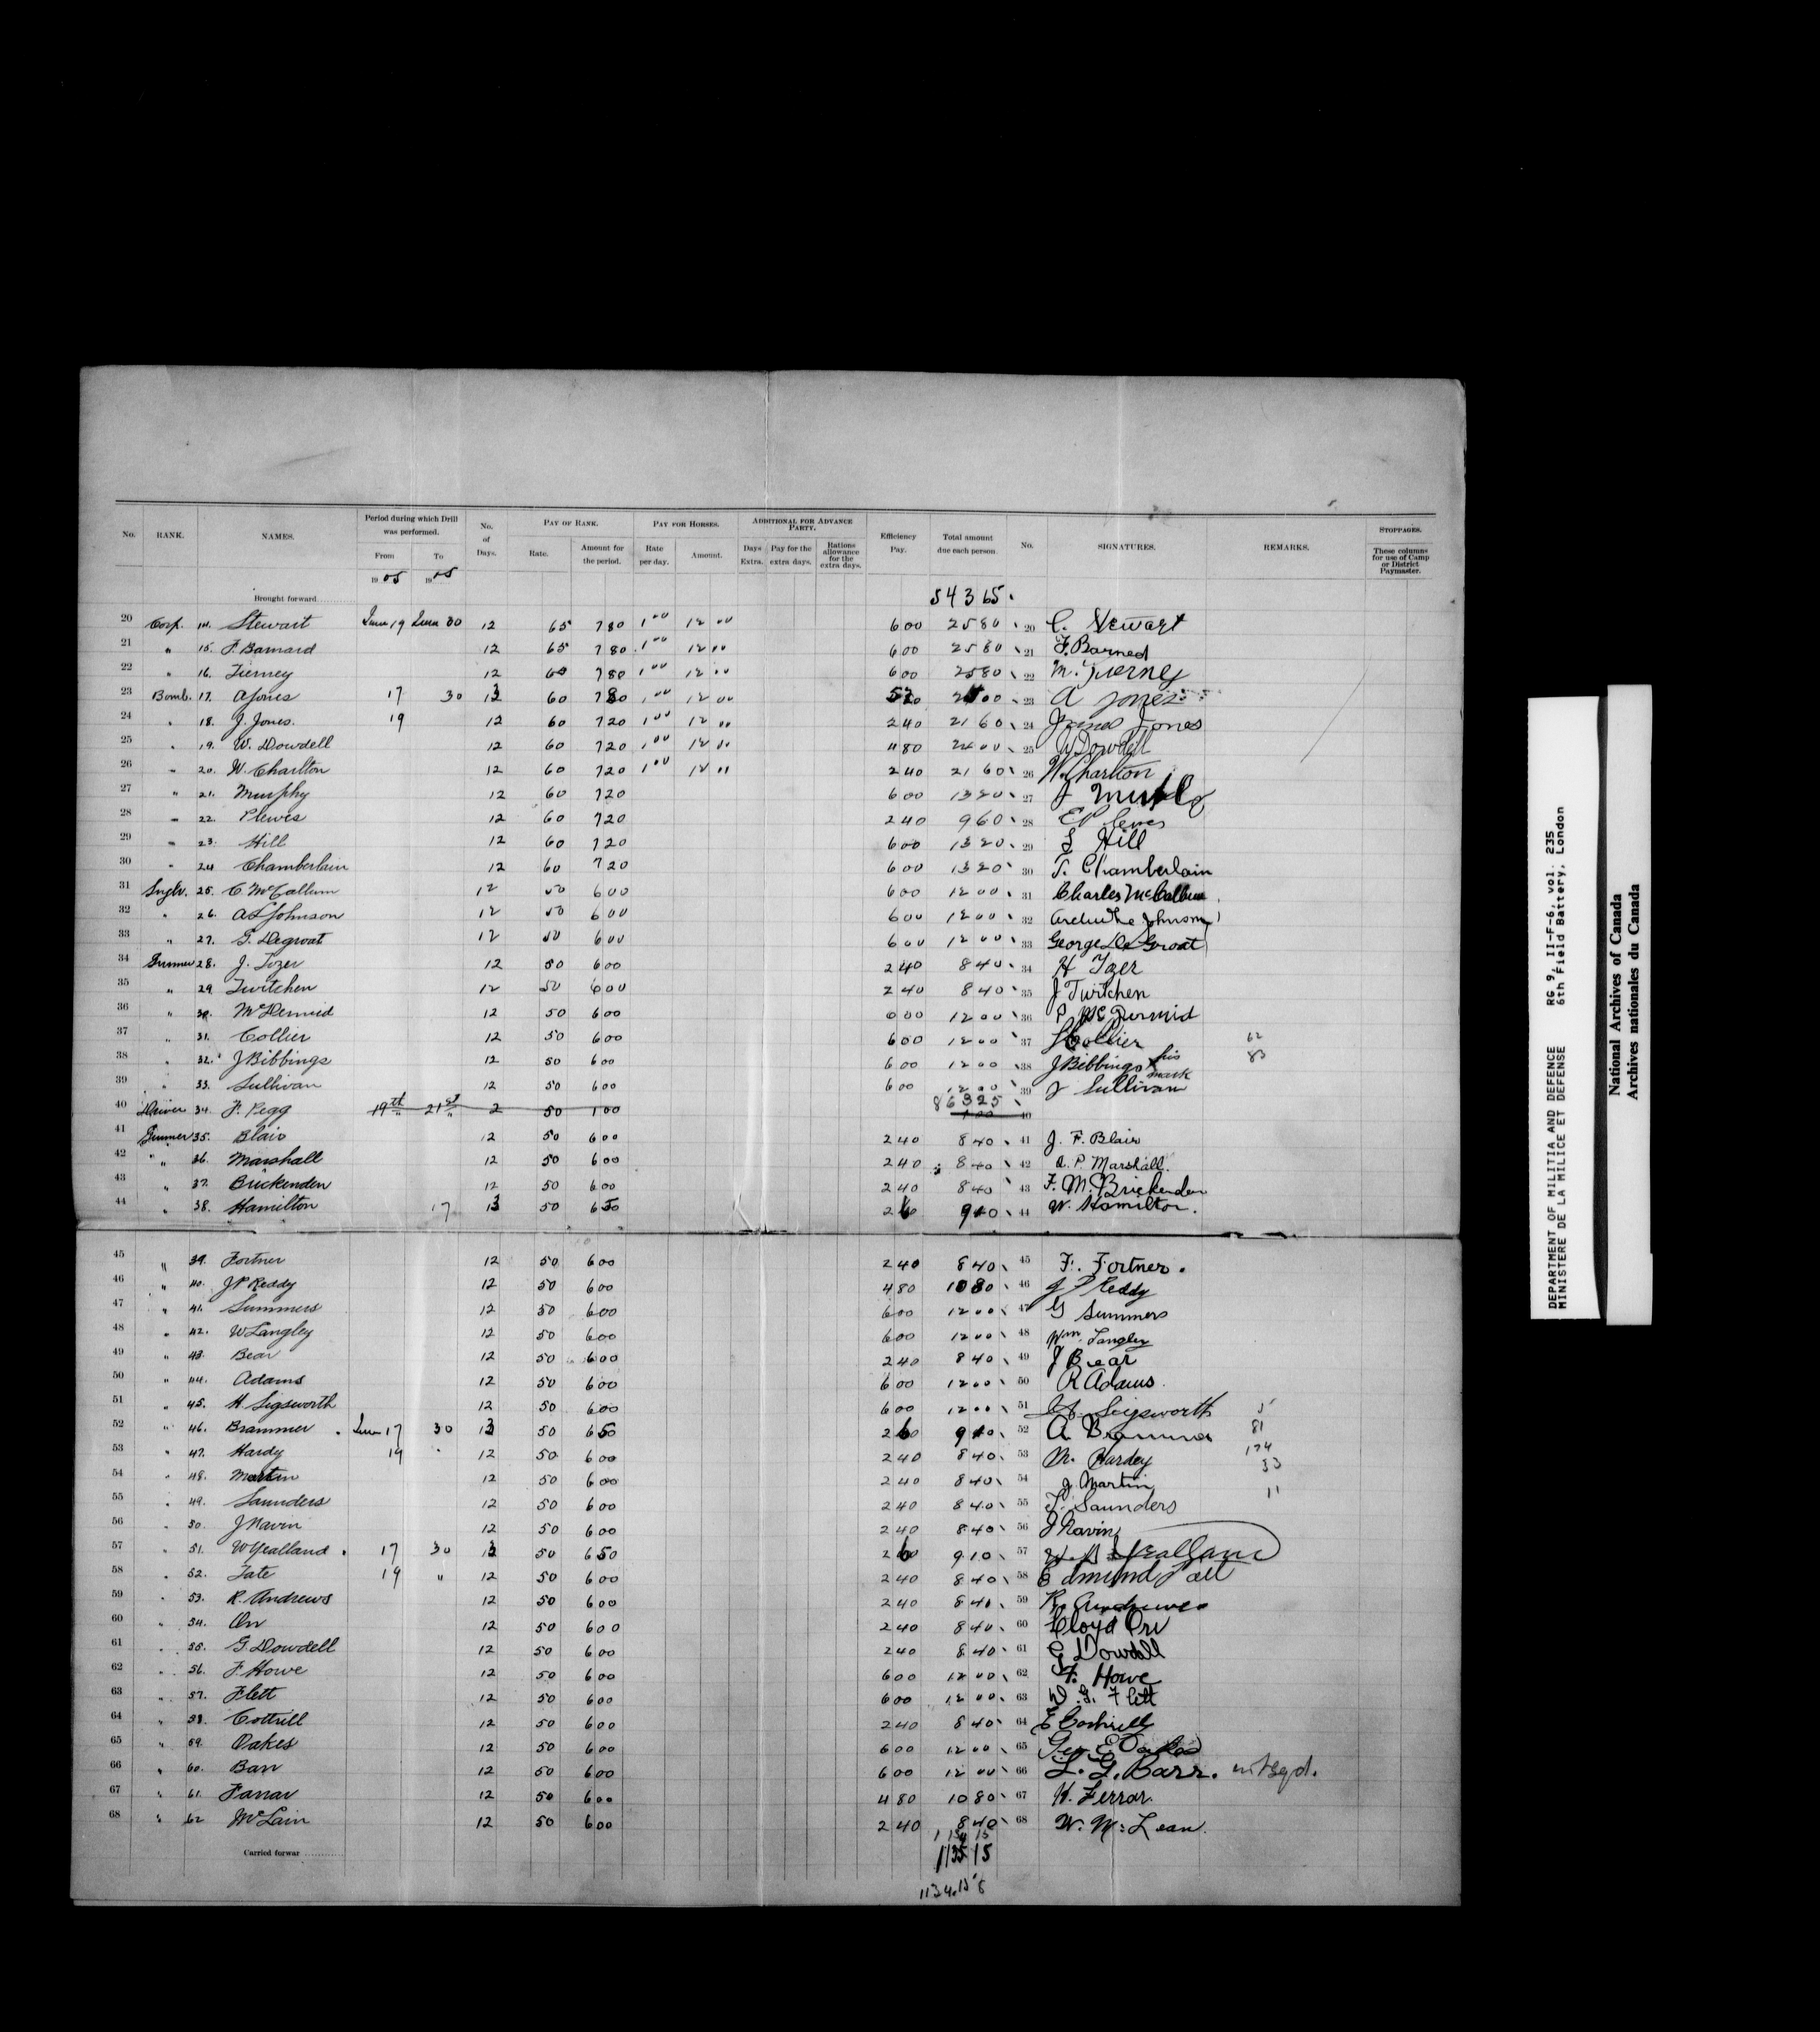 No. RANK. NAMES. Period during which Drill was performed. From To No. of Days. PAY OF RANK. Rate. Amount for the period. PAY FOR HORSES. Rate per day. Amount. ADDITIONAL FOR ADVANCE PARTY. Days Extra. Pay for the extra days. Rations allowance for the extra days. Efficiency Pay. Total amount due each person. No. SIGNATURES. REMARKS. STOPPAGES. These columns for use of Camp or District Paymaster.
1905 1905
Brought forward 543 65.
20 Corp. 14. Stewart June 19 June 30 12 65 7 80 1 00 12 00 6 00 25 80 20 C. Stewart
21 " 15. F. Barnard 12 65 7 80 1 00 12 00 6 00 25 80 21 F. Barned
22 " 16. Tierney 12 7 80 1 00 12 00 6 00 25 80 22 M. Tierney
23 Bomb. 17. A Jones 17 30 13 60 7 80 1 00 12 00 23 A Jones
24 " 18. J. Jones. 19 12 60 7 20 1 00 12 00 2 40 21 60 24 James Jones
25 " 19. W. Dowdell 12 60 7 20 1 00 12 00 4 80 24 00 25 W Dowdell
26 " 20. W. Charlton 12 60 7 20 1 00 12 00 2 40 21 60 26 W. Charlton
27 " 21. Murphy 12 60 7 20 6 00 13 20 27
28 " 22. Plewes 12 60 7 20 2 40 9 60 28 E Plewes
29 " 23. Hill 12 60 7 20 6 00 13 20 29 Hill
30 " 24 Chamberlain 12 60 7 20 6 00 13 20 30 T. Chamberlain
31 25. C. McCallum 12 50 6 00 6 00 12 00 31 Charles McCallum
32 " 26. A L Johnson 12 50 6 00 6 00 12 00 32 Johnson
33 " 27. G. Degroat 12 50 6 00 6 00 12 00 33 George De Groat
34 Gunner 28. J. Tozer 12 50 6 00 2 40 8 40 34 H Tozer
35 " 29 Twitchen 12 50 6 00 2 40 8 40 35 J Twitchen
36 " 30. McDermid 12 50 6 00 6 00 12 00 36 P McDermid
37 " 31. Collier 12 50 6 00 6 00 12 00 37 Collier 62
38 " 32. J Bibbings 12 50 6 00 6 00 12 00 38 J Bibbings his X mark 83
39 " 33. Sullivan 12 50 6 00 6 00 12 00 39 J Sullivan
863 25
40 Driver 34. F. Pegg 19th 21st 2 50 1 00 1 00 40
41 Gunner 35. Blair 12 50 6 00 2 40 8 40 41 J. F. Blair
42 " 36. Marshall 12 50 6 00 2 40 8 40 42 A. P. Marshall.
43 " 37. Brickenden 12 50 6 00 2 40 8 40 43 F. M. Brickenden
44 " 38. Hamilton 17 13 50 6 50 2 60 9 10 44 W. Hamilton.
45 " 39. Fortner 12 50 6 00 2 40 8 40 45 F. Fortner.
46 " 40. J P Reddy 12 50 6 00 4 80 10 80 46 J P Reddy
47 " 41. Summers 12 50 6 00 6 00 12 00 47 G Summers
48 " 42. W Langley 12 50 6 00 6 00 12 00 48 Wm. Langley
49 " 43. Bear 12 50 6 00 2 40 8 40 49 J Bear
50 " 44. Adams 12 50 6 00 6 00 12 00 50 R Adams.
51 " 45. H. Sigsworth 12 50 6 00 6 00 12 00 51 H. Sigsworth 5
52 " 46. Brammer June 17 30 13 50 6 50 2 60 9 10 52 A Brammer 81
53 " 47. Hardy 19 " 12 50 6 00 2 40 8 40 53 M. Hardey 174
54 " 48. Martin 12 50 6 00 2 40 8 40 54 J. Martin 33
55 " 49. Saunders 12 50 6 00 2 40 8 40 55 T. Saunders 11
56 " 50. J Navin 12 50 6 00 2 40 8 40 56 J Navin
57 " 51. W Yealland 17 30 13 50 6 50 2 60 9 10 57 Yealland
58 " 52. Tate 19 " 12 50 6 00 2 40 8 40 58 Edmund Tait
59 " 53. R. Andrews 12 50 6 00 2 40 8 40 59 R. Andrews
60 " 54. Orr 12 50 6 00 2 40 8 40 60 Lloyd Orr
61 " 55. G. Dowdell 12 50 6 00 2 40 8 40 61 G Dowdell
62 " 56. F. Howe 12 50 6 00 6 00 12 00 62 F. Howe
63 " 57. Flett 12 50 6 00 6 00 12 00 63 W. G. Flett
64 " 58. Cottrill 12 50 6 00 2 40 8 40 64 E Cottrill
65 " 59. Oakes 12 50 6 00 6 00 12 00 65 Geo E Oakes
66 " 60. Barr 12 50 6 00 6 00 12 00 66 L. G. Barr. not sqd.
67 " 61. Farrar 12 50 6 00 4 80 10 80 67 H. Ferrar.
68 " 62 McLain 12 50 6 00 2 40 8 40 68 W. Mc Lean.
1134 15
Carried forwar 1135 15
1134.15
DEPARTMENT OF MILITIA AND DEFENCE RG 9, II-F-6, vol. 235
MINISTERE DE LA MILICE ET DEFENSE 6th Field Battery, London
National Archives of Canada
Archives nationales du Canada